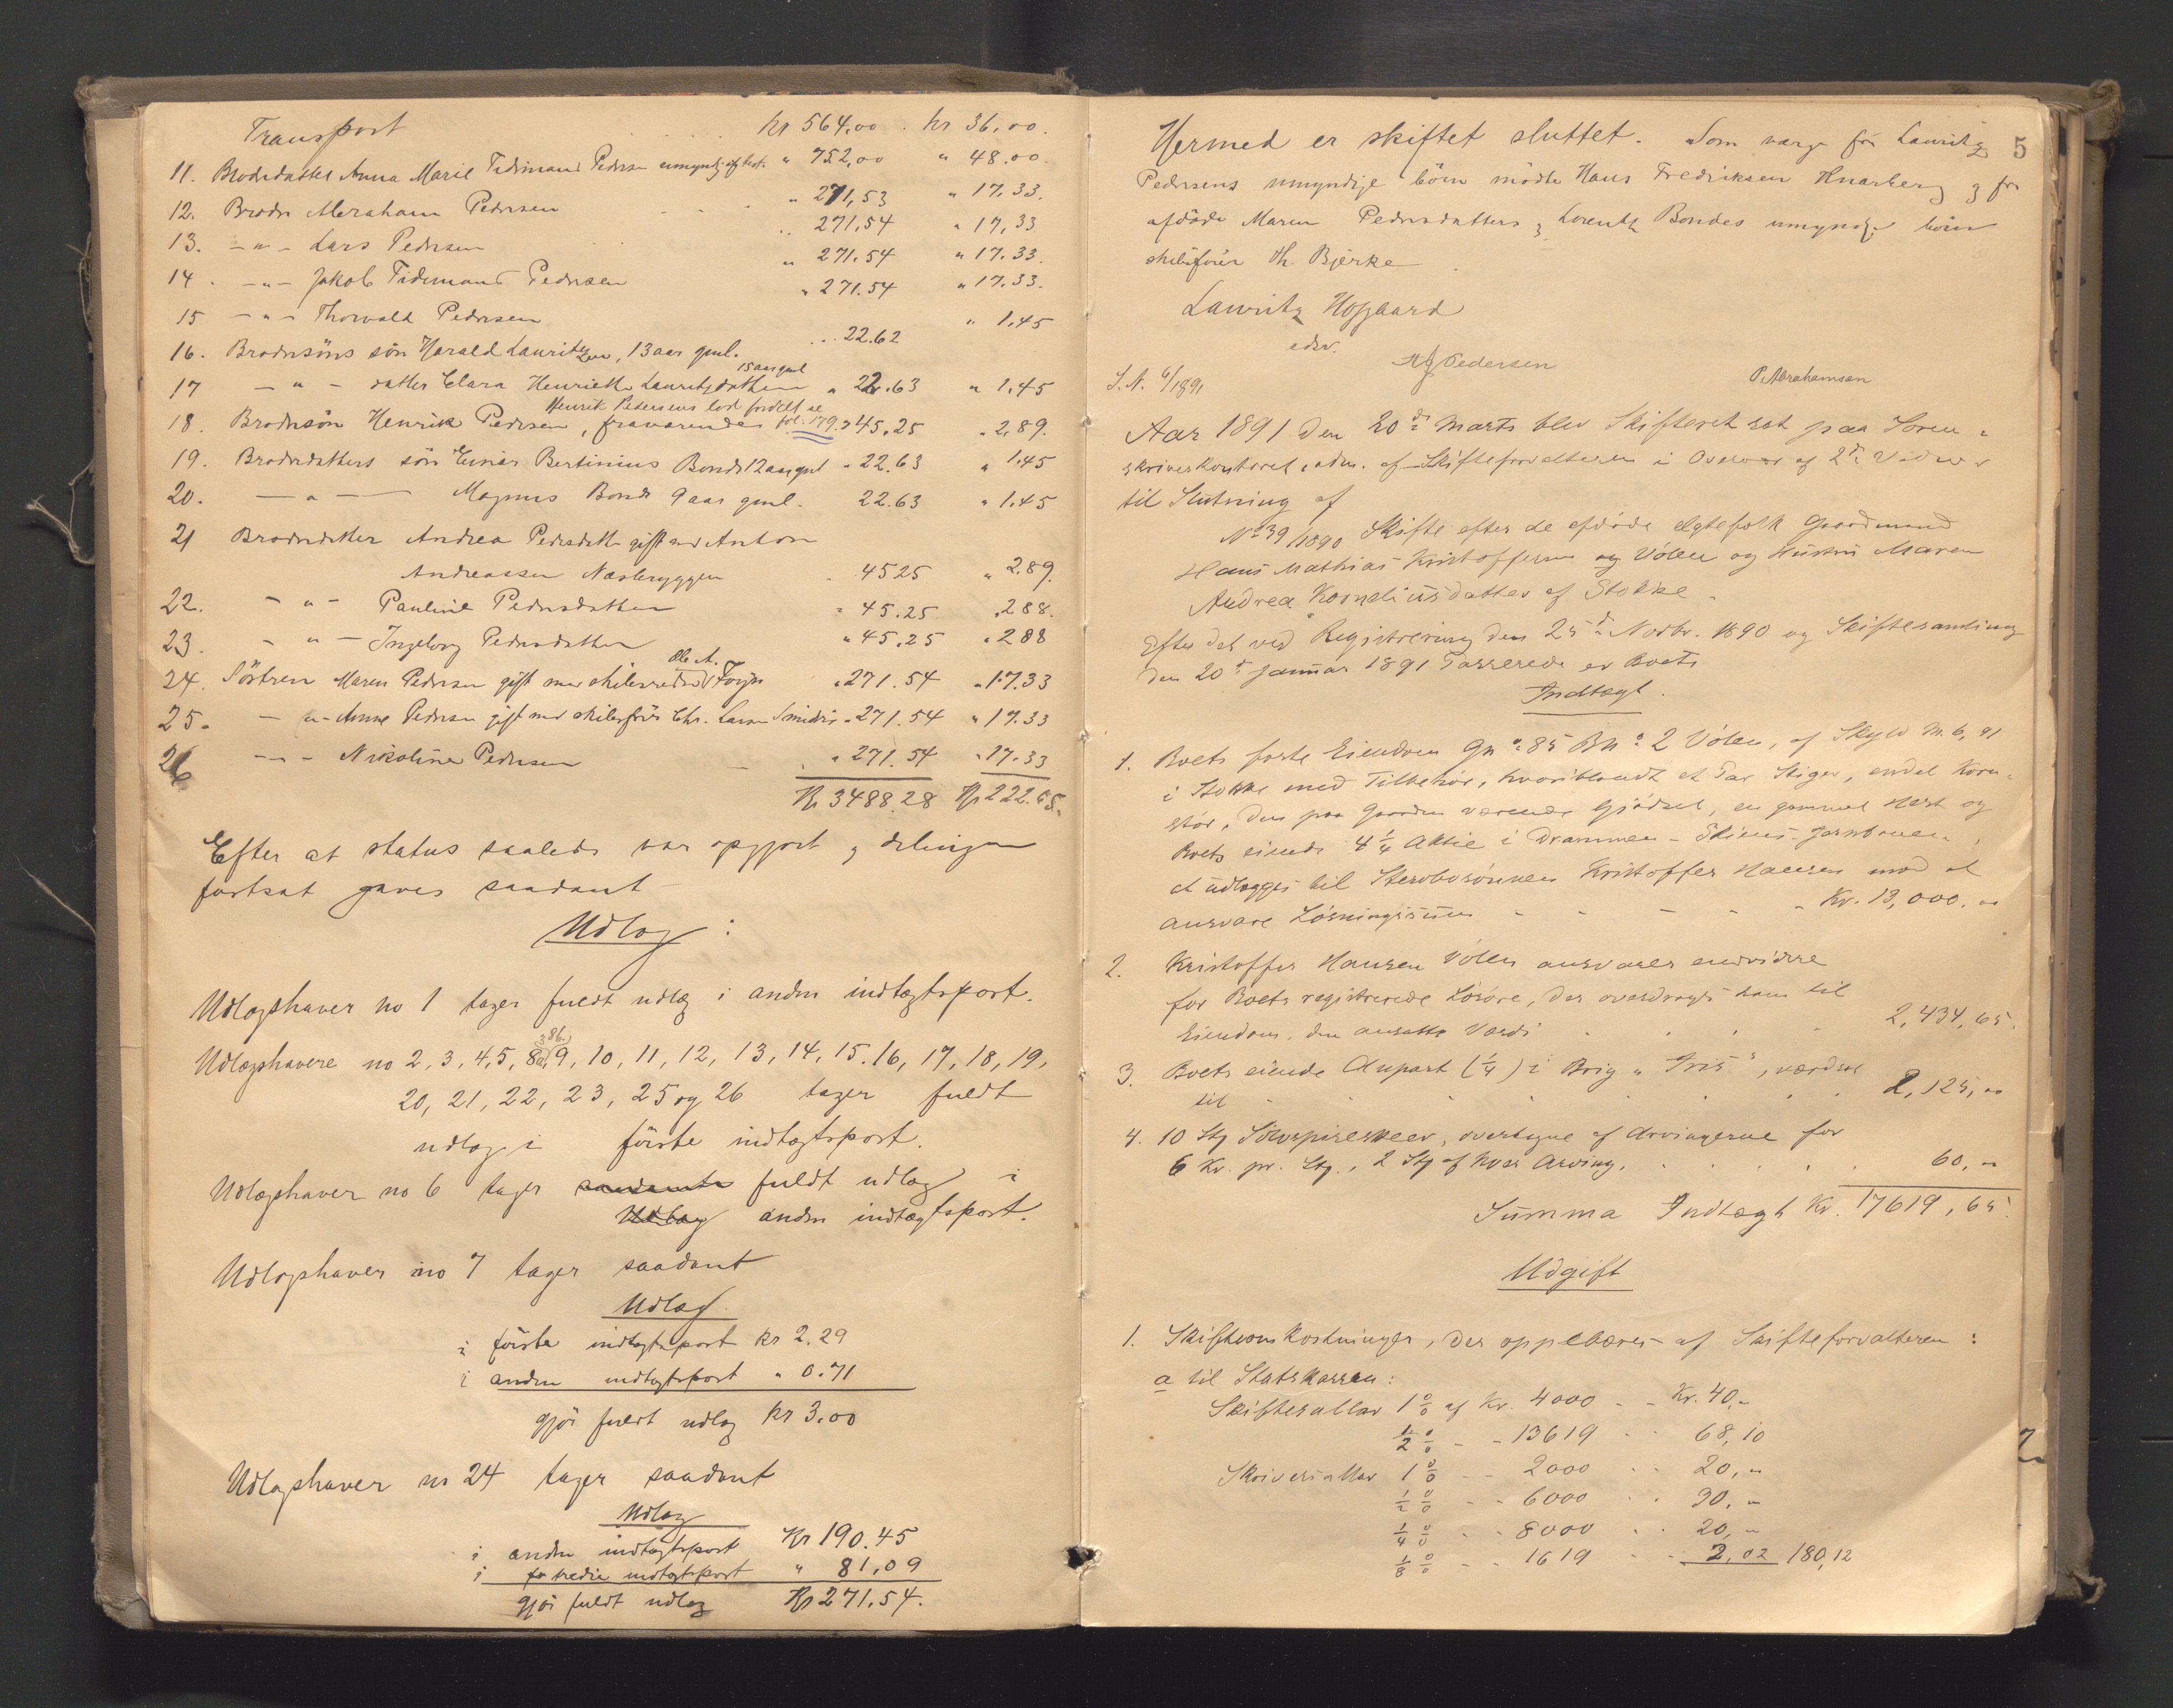 Transport kr 564,00 . kr 36,00.
11. Broderdatter Anna Marie Tidimand Pedersen umyndig " 752,00 " 48.00
12. Broder Abraham Pedersen " 271,53 " 17.33.
13. - " - Lars Pedersen " 271,54 " 17,33
14. - " - Jakob Tidemand Pedersen " 271.54 " 17.33.
15 - " - Thorvald Pedersen " 271.54 " 17.33.
16. Brodersöns sön Harald Lauritzen, 13 aar gml. 22.62 " 1.45
15 aar gml
17 - " - datter Clara Henriette Lauritzdatter " 22.63 " 1.45
Henrik Pedersens lod fordelt se
18. Brodersön Henrik Pedersen, fraværende fol. 179. " 45.25 " 2.89.
19. Broderdatters sön Einar Bertinius Bonde 12 aar gml " 22.63 " 1.45
20. - " - Magnus Bonde 9 aar gml. 22.63 " 1.45
21 Broderdatter Andrea Pedersdatter gift med Anton
Andreassen Nesbryggen 45 25 " 2.89.
22. - " - Pauline Pedersdatter " 45.25 " 2.88.
23. - " - Ingeborg Pedersdatter " 45.25 " 2.88
Ole A.
24. Söstren Maren Pedersen gift med skibsreder Foyn " 271.54 " 17.33
25. - " - Anne Pedersen gift med skibsförer Chr. Larsen " 271.54 " 17.33
26 - " - Nikoline Pedersen " 271.54 " 17.33
Kr 3488.28 Kr 222.65.
Efter at status saaledes var opgjort og delingen
fortsat gaves saadant
Udlæg :
Udlægshaver no 1 tager fuldt udlæg i anden indtægtspost.
Udlægshavere no 2, 3, 4, 5, 8a, 8b, 9, 10, 11, 12, 13, 14, 15. 16, 17, 18, 19,
20, 21, 22, 23, 25 og 26 tager fuldt
udlæg i förste indtægtspost.
Udlægshaver no 6 tager saadant fuldt udlæg i
Udlæg anden indtægtspost.
Udlægshaver no 7 tager saadant
Udlæg
i förste indtægtspost kr 2.29
i anden indtægtspost " 0.71
gjör fuldt udlæg kr 3.00
Udlægshaver no 24 tager saadant
Udlæg
i anden indtægtspost Kr 190.45
i tredie indtægtspost " 81,09
gjör fuldt udlæg Kr 271.54.
5
Hermed er skiftet sluttet. Som værge for Lauritz
Pedersens umyndige börn mödte Hans Fredriksen Knarberg og for
afdöde Maren Pedersdatters og Lorentz Bondes umyndige börn
skibsförer Th. Bjerke
Lauritz Hofgaard
edsv.
HJPedersen P. Abrahamsen
S. N. 6/1891
Aar 1891 den 20de Marts blev Skifteret sat paa Soren-
skriverkontoret, adm. af Skifteforvalteren i Overvær af 2de Vidner
til Slutning af
No 39/1890 Skifte efter de afdöde egtefolk Gaardmand
Hans Mathias Kristoffersen og Völen og Hustru Maren
Andrea Korneliusdatter af Stokke.
Efter det ved Registrering den 25de Novbr. 1890 og Skiftesamling
den 20de Januar 1891 Passerede er Boets
Indtægt.
1. Boets faste Eiendom Gn: 85 Bn: 2 Völen, af Skyld M. 6, 91
i Stokke med Tilbehör, hvoriblandt et Par Stiger, endel Korn-
stör, den paa Gaarden værende Gjödsel, en gammel Hest og
Boets eiende 4 1/4 Aktie i Drammen - Skiens-Jernbanen,
at udlægges til Stervbosönnen Kristoffer Hansen mod at
ansvare Lösningssum - - - - Kr. 13,000. "
2. Kristoffer Hansen Völen ansvarer endvidere
for Boets registrerede Lösöre, der overdrages ham til
Eiendom, den ansatte Værdi 2,434,65.
3. Boets eiende Anpart (1/4) i Brig "Iris", værdsat
til 2,125, "
4. 10 Stg Sölvspiseskeer, overtagne af Arvingerne for
6 Kr. pr. Stg., 2 Stg af hver Arving. 60, "
Summa Indtægt Kr. 17619, 65.
Udgift
1. Skifteomkostninger, der oppebæres af Skifteforvalteren :
a til Statskassen:
Skiftesallar 1 % af Kr. 4000 - - Kr. 40,-
1/2 % - - 13619 - - 68,10
Skriversallar 1 % - - 2000 - - 20,-
1/2 % - - 6000 - - 30,-
1/4 % - - 8000 - - 20,-
1/8 % - - 1619 - - 2,02 180,12